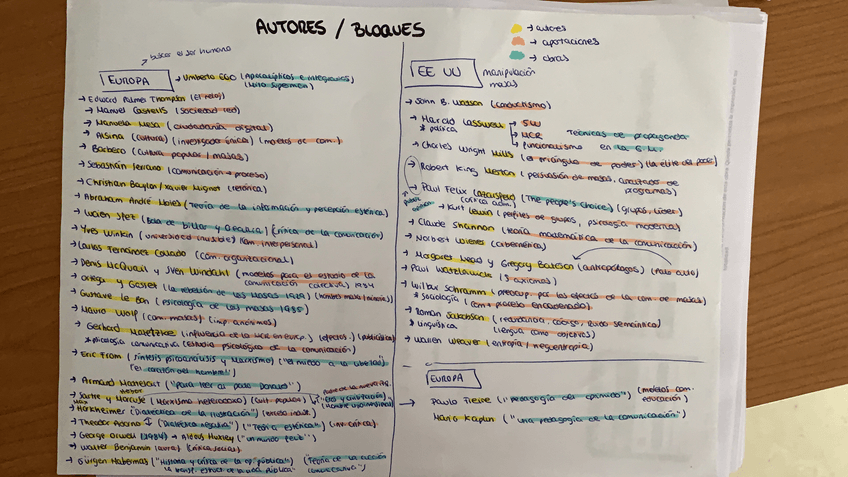 AUTORES / BLOQUES
→ autores
→ aportaciones
→ obras
buscar el ser humano
EUROPA
→ Umberto ECO (Apocalípticos e integrados)
→ Edward Palmer Thompson (El reto)
→ Manuel Castells (sociedad red)
→ Manuela Mesa (ciudadanía digital)
→ Alsina (cultura) (investigador única) (modelos de com.)
→ Barbero (cultura popular / masas)
→ Sebastián Serrano (comunicación = proceso)
→ Christian Baylon / Xavier Mignot (retórica)
→ Abraham André Moles (Teoría de la información y percepción estética)
→ Lucien Sfez (Bola de billar y (crítica de la comunicación)
→ Yves Winkin (universidad invisible) (com. interpersonal
→ Carlos Fernández Collado (com. organizacional)
→ Denis McQuail y Sven Windahl (modelos para el estudio de la
comunicación colectiva)
→ Ortega y Gasset (la rebelión de las masas 1929) (hombre masa)
→ Gustave le Bon (psicología de las masas
→ Mauro Wolf (com. masas)
→ Gerhard Maletzke (influencia de la MCR en Europ.) (efectos.) (publicística)
* psicología comunicativa (estudio psicológico de la comunicación)
→ Eric From (síntesis psicoanálisis y Marxismo) ("el miedo a la libertad)
corazón del hombre")
→ Armand Mattelart ("para leer al pato Donald")
→ Sartre y Marcuse (Marxismo heterodoxo) (cult. popular) ("eros y civilización)
→ Horkheimer (Dialéctica de la ilustración)
→ Theodor Adorno ("Dialéctica negativa") ("Teoría estética")
→ George Orwell (1984) → Aldous Huxley ("un mundo feliz")
→ Walter Benjamin (aura) (crítica social)
→ Gürgen Habermas ("Historia y crítica de la op. pública") ("Teoría de la acción
comunicativa")
EE UU
manipulación
masas
→ John B. Watson (conductismo)
→ Harold Lasswell → 5W
* política → MCR
→ Funcionalismo
Técnicas de propaganda
en la G.M.
→ Charles Wright Mills (el triángulo de poder) (la élite del poder)
→ Robert King Merton (persuasión de masas, analizador de
programas)
→ Paul Felix Lazarsfeld (The people's choice) (grupos, líder)
→ Kurt Lewin (perfiles de grupos, psicología moderna)
→ Claude Shannon (teoría matemática de la comunicación)
→ Norbert Wiener (cibernética)
→ Margaret Mead y Gregory Bateson (antropólogos) (Palo Alto)
→ Paul Watzlawick (5 axiomas)
→ Wilbur Schramm (preocup. por los efectos de la com. de masas)
* sociología (com = proceso
→ Roman Jakobson (redundancia, código, ruido semántico)
* lingüística (lengua como objetivo)
→ Warren Weaver (entropía / neguentropía)
EUROPA
→ Paulo Freire ("pedagogía del oprimido") (modelos com.
educación)
Mario Kaplún ("una pedagogía de la comunicación")